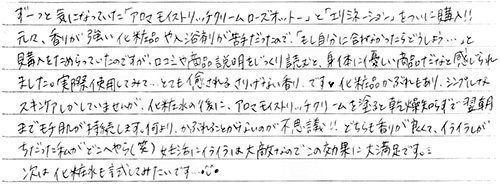 ずーっと気になっていた「アロマモイストリッチクリームローズオットー」と「エリシネーション」をついに購入!!
元々、香りが強い化粧品や入浴剤が苦手だったので、「もし自分に合わなかったらどうしよう…」と
購入をためらっていたのですが、口コミや商品説明をじっくり読むと、身体に優しい商品だなと感じられ
ました。実際使用してみて…とても癒されるさりげない香り。です♥ 化粧品かぶれもあり、シンプルな
スキンケアしかしていませんが、化粧水の後に、アロマモイストリッチクリームを塗ると乾燥知らずで翌朝
までモチ肌が持続します。何より、かぶれることがないのが不思議!! どちらも香りが良くて、イライラが
ちだった私がどこへやら(笑) 妊活にイライラは大敵なのでこの効果に大満足です。
次は化粧水も試してみたいです…